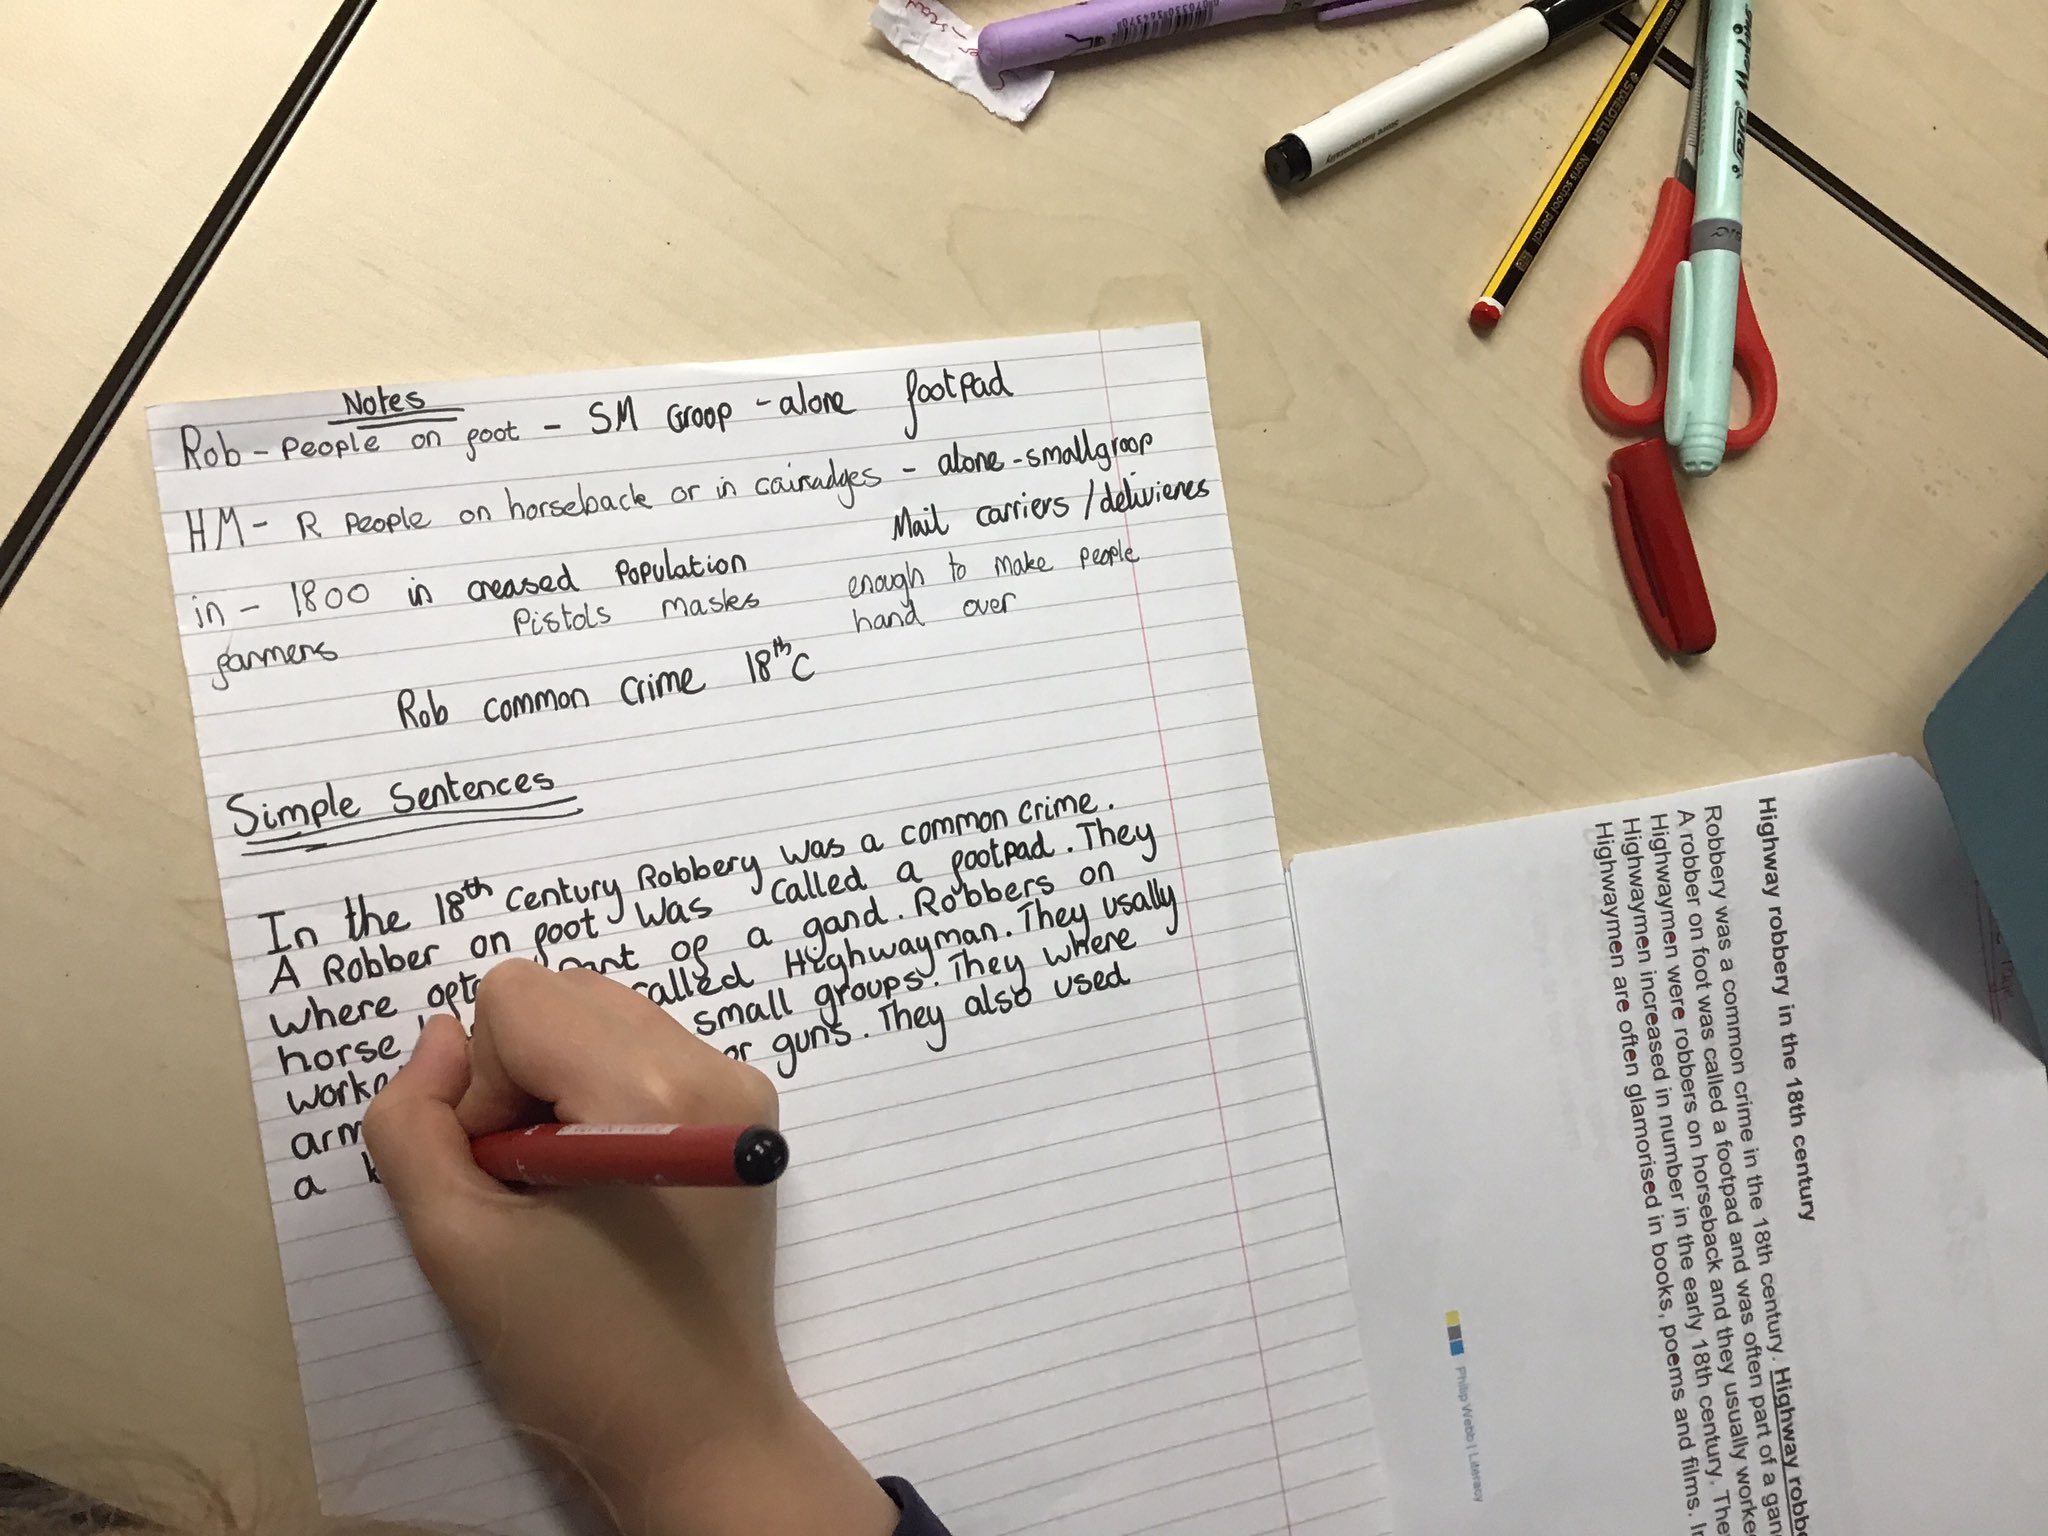 Notes
Rob - People on foot - SM Groop - alone footpad
HM - R People on horseback or in cairadges - alone - smallgroop
Mail carriers / delivieries
in - 1800 in creased Population
enough to make people
Pistols masks
hand over
farmers
Rob common crime 18th C
Simple Sentences
In the 18th century Robbery was a common crime.
A Robber on foot was called a footpad. They
where part of a gand. Robbers on
horse called Highwayman. They usally
small groups. They where
or guns. They also used
a
Highway robbery in the 18th century
Robbery was a common crime in the 18th century. Highway
A robber on foot was called a footpad and was often part of a
Highwaymen were robbers on horseback and they usually
Highwaymen increased in number in the early 18th century.
Highwaymen are often glamorised in books, poems and films.
Philip Webb | Literacy
STAEDTLER Noris school pencil
BIC